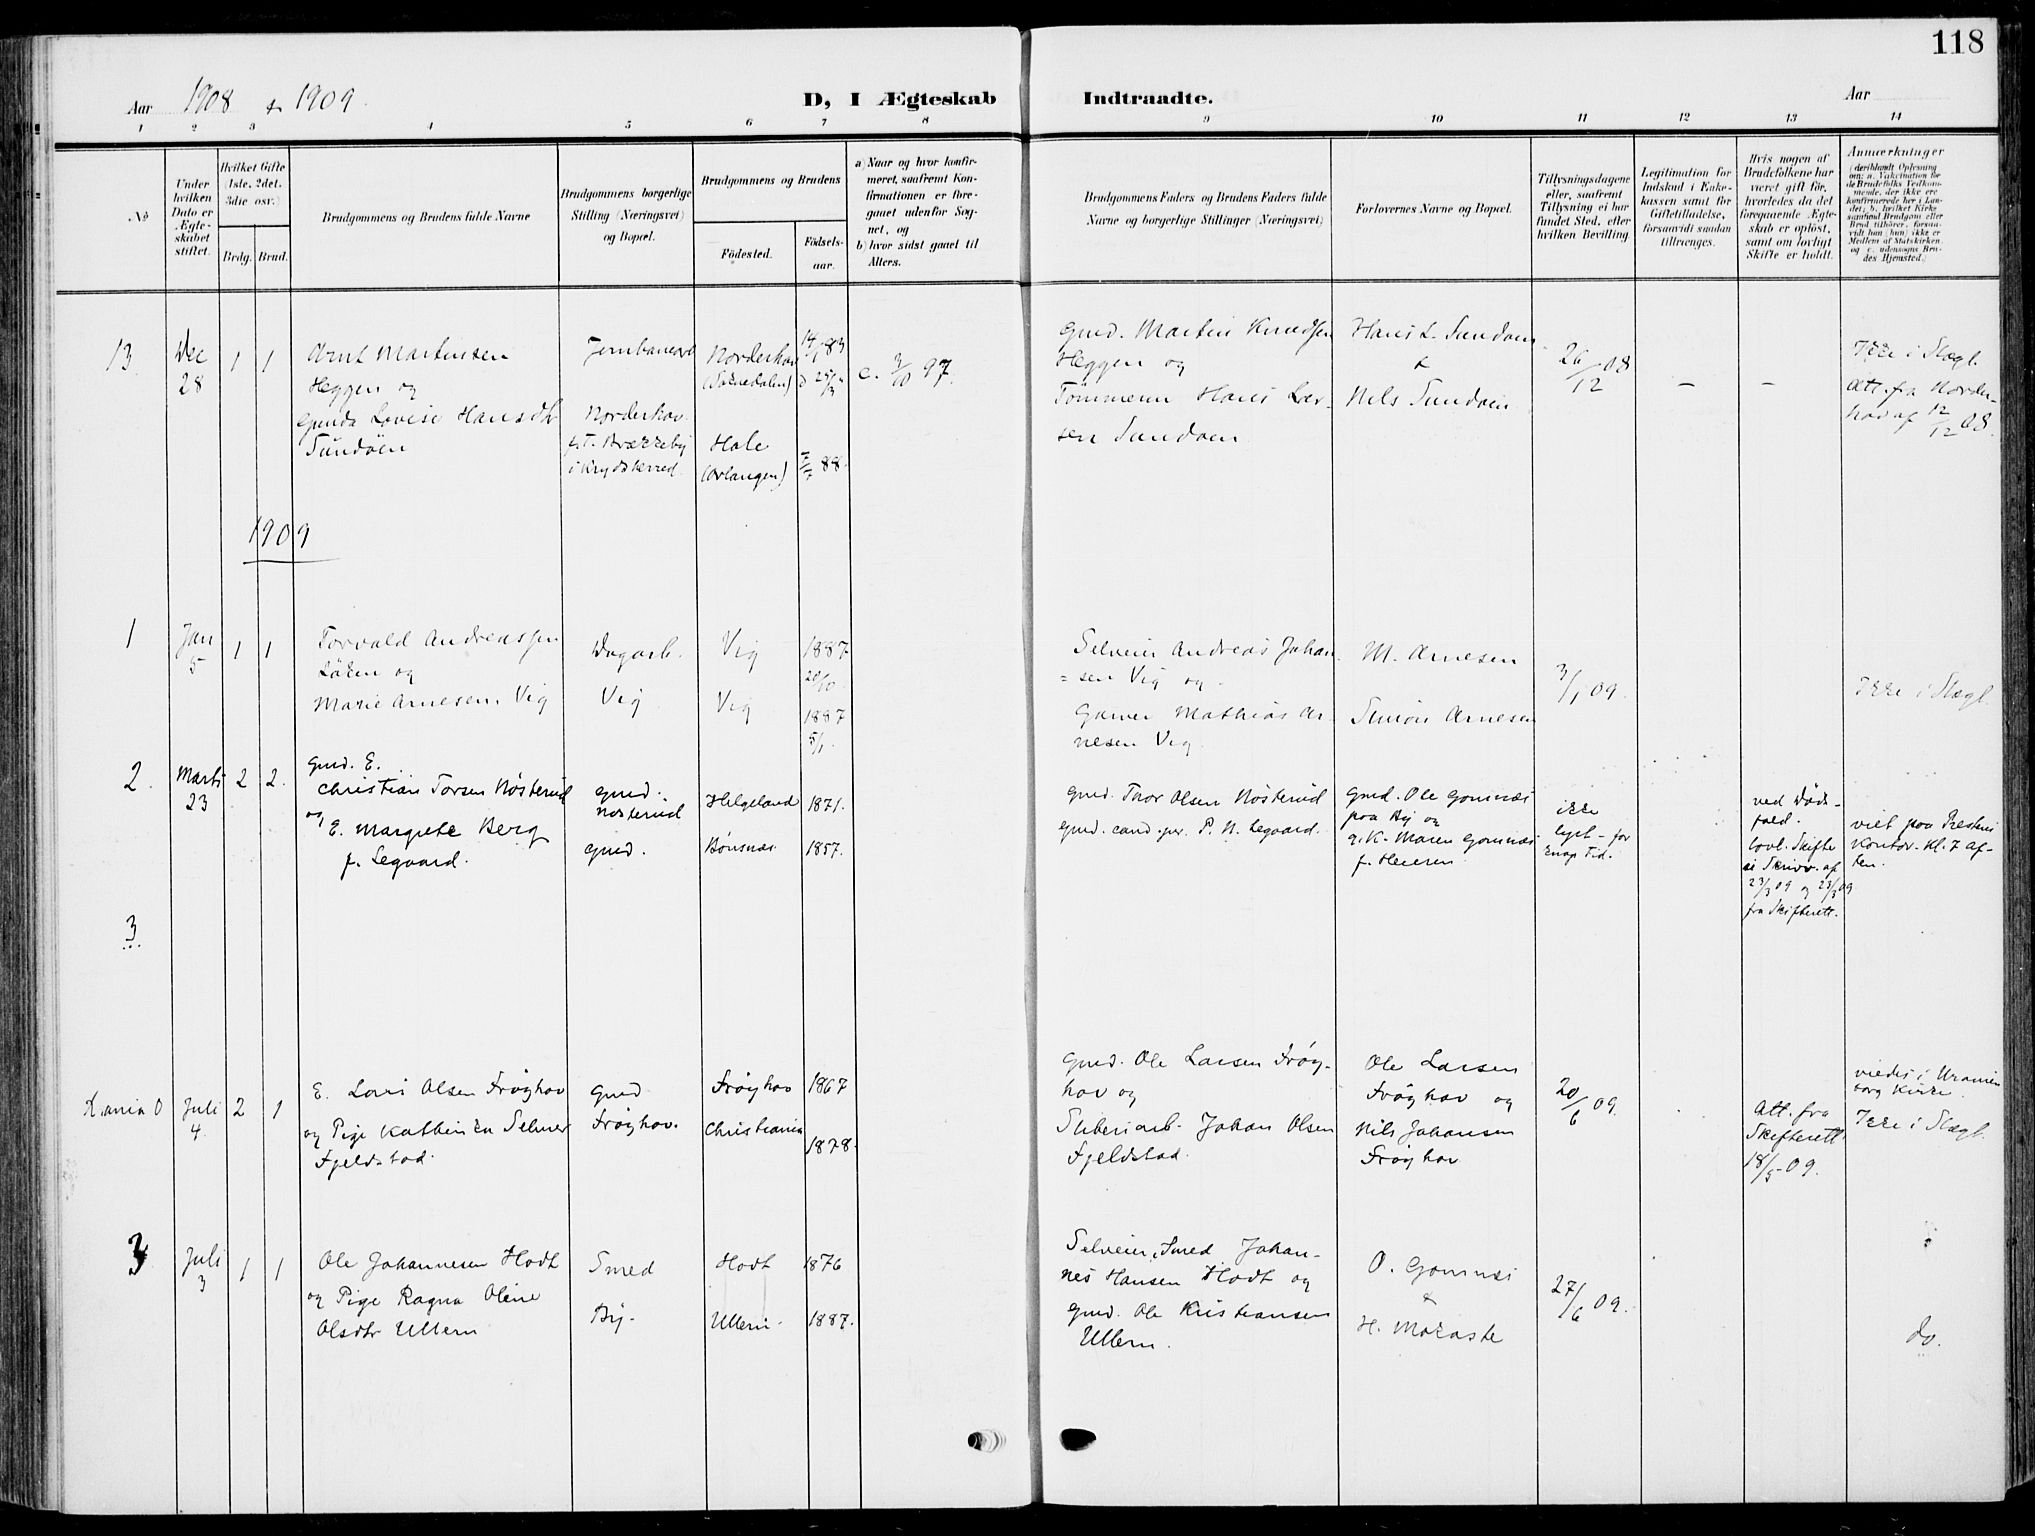 118
Aar 1908 & 1909.
D, I Ægteskab
Indtraadte.
Aar
1 2 3 4 5 6 7 8
9 10 11 12 13 14
No
Under hvilken Dato er Ægteskabet stiftet.
Hvilket Gifte (1ste, 2det, 3die osv.)
Brdg. Brud.
Brudgommens og Brudens fulde Navne
Brudgommens borgerlige Stilling (Næringsvei) og Bopæl.
Brudgommens og Brudens
Födested.
Födselsaar.
a) Naar og hvor konfirmeret, saafremt Konfirmationen er foregaaet udenfor Sognet, og
b) hvor sidst gaaet til Alters.
Brudgommens Faders og Brudens Faders fulde Navne og borgerlige Stillinger (Næringsvei)
Forlovernes Navne og Bopæl.
Tillysningsdagene eller, saafremt Tillysning ei har fundet Sted, efter hvilken Bevilling.
Legitimation for Indskud i Enkekassen samt for Giftetilladelse, forsaavidt saadan tiltrænges.
Hvis nogen af Brudefolkene har været gift för, hvorledes da det foregaaende Ægteskab er oplöst, samt om lovligt Skifte er holdt.
Anmærkninger
(deriblandt Oplysning om: a. Vaksination for de Brudefolks Vedkommende, der ikke ere konfirmerede her i Landet; b. hvilket Kirkesamfund Brudgom eller Brud tilhörer, forsaavidt han (hun) ikke er Medlem af Statskirken, og c. udensogns Brudes Hjemsted.)
13
Dec
28
1 1
Arnt Martinsen
Heggen og
Gunda Lovise Hansdtr
Sundöen
Norderhov
i Krydsherred
Norderhov
(Soknedalen)
Hole
14/1 83
88.
c. 3/10 97.
Gmd. Martin Knudsen
Heggen og
Tömmerm Hans Lar-
sen Sundöen
Hans L. Sundöen
&
Nils Sundöen
26/12 08
–
–
Ikke i Slægt.
Att. fra Norder-
hov af 12/12 08.
1909
1
Jan
5
1 1
Torvald Andreassen
Löken og
Marie Arnesen, Vig
Dagarb.
Vig
Vig
Vig
1887
20/10.
1887
5/1.
Selveier Andreas Johan-
= sen Vig og
Mathias Ar-
nesen Vig.
M. Arnesen
Simon Arnesen
3/1 09.
Ikke i Slægt.
2.
Marts
23
2 2.
Gmd. E.
Christian Torsen Nösterud
og E. Margrete Berg
f. Legaard.
Gmd.
Nösterud
Gmd.
Helgeland
Bönsnæs
1871.
1857.
Gmd. Thor Olsen Nösterud
Gmd. cand. jur. P. N. Legaard.
Gmd. Ole Gomnæs
paa By og
G. K. Maren Gomnæs
ikke
lyst – for
knap Tid.
ved Döds-
fald.
Lovl. Skifte
23/3 09 og 23/3 09
fra Skifterett.
viet paa Prestens
Kontor Kl. 7 af-
ten.
3
Kania 0
Juli
4.
2 1
E. Lars Olsen Fröyhov
og Pige Kathinka Selmer
Fjeldstad.
Gmd
Fröyhov.
Fröyhov
Christiania
1867
1878.
Gmd. Ole Larsen Fröy-
hov og
Johan Olsen
Fjeldstad.
Ole Larsen
Fröyhov og
Nils Johansen
Fröyhov
20/6 09.
Att. fra
Skifterett
18/5 09.
viedes i Uranien-
borg Kirke.
Ikke i Slægt.
3
Juli
3
1 1
Ole Johannesen Hodt
og Pige Ragna Oline
Olsdtr Ullern
Smed
By.
Hodt
Ullern.
1876
1887.
Selveier, Smed Johan-
nes Hansen Hodt og
Gmd. Ole Kristiansen
Ullern.
O. Gomnæs
&
H. Moxaste
27/6 09.
do.